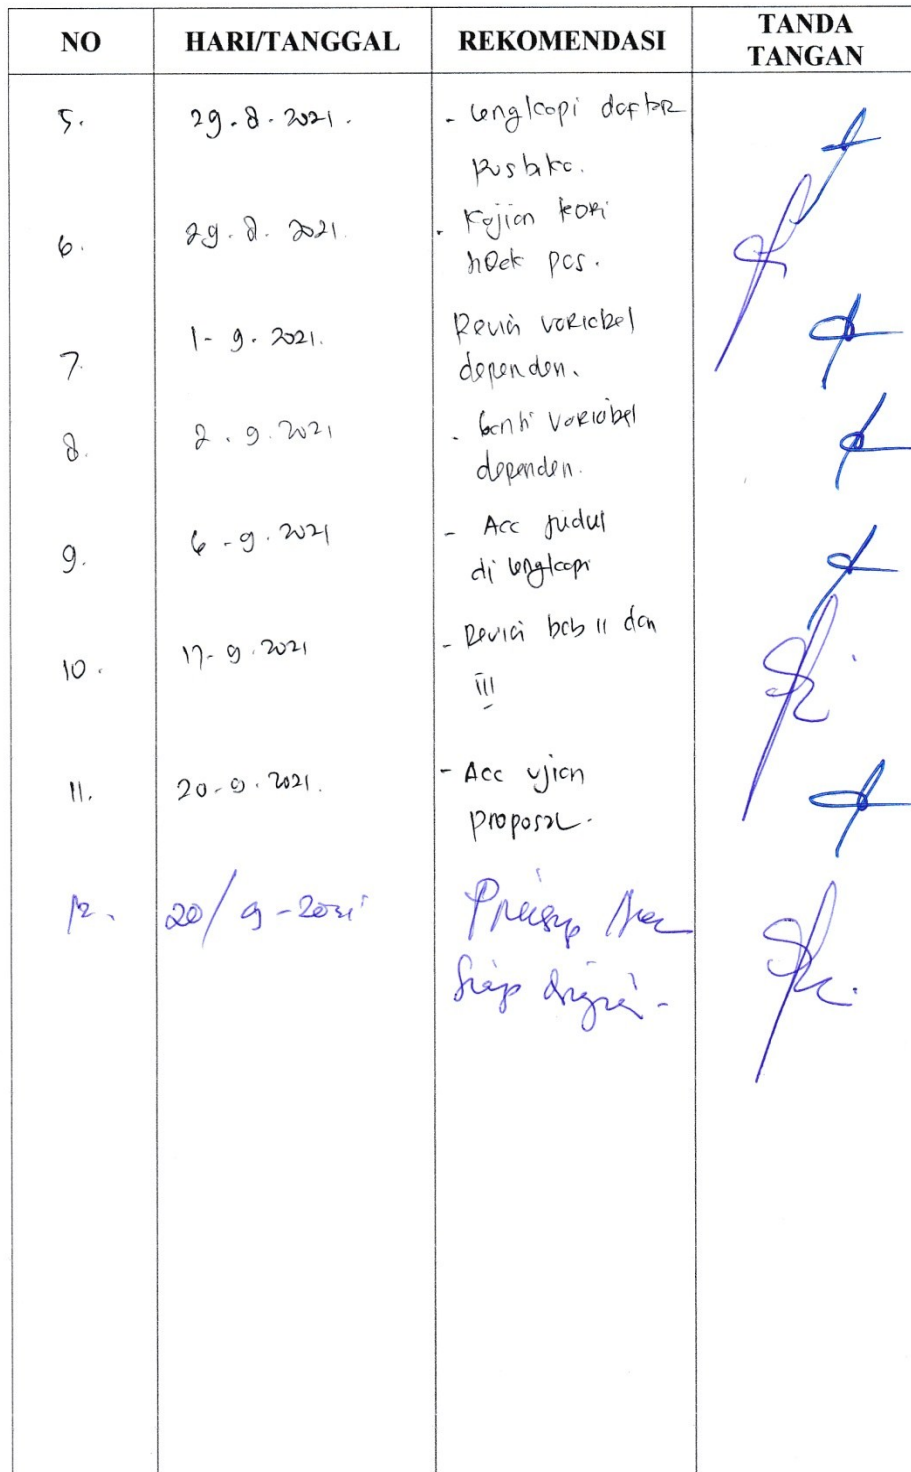 NO HARI/TANGGAL REKOMENDASI TANDA
TANGAN
5. 29.8.2021. - Lengkapi daftar
pustaka.
6. 29.8.2021. - Kajian teori
tidak pas.
7. 1-9.2021. Revisi variabel
dependen.
8. 2.9.2021 - Ganti variabel
dependen.
9. 6-9.2021 - Acc judul
di lengkapi
10. 17-9.2021 - Revisi bab II dan
III
11. 20-9.2021. - Acc ujian
proposal.
12. 20/9-2021 Prinsip Acc
Siap diuji -